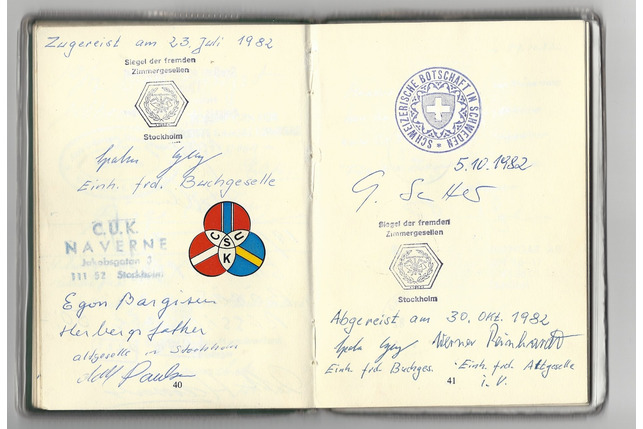 Zugereist am 23. Juli 1982
Siegel der fremden
Zimmergesellen
Stockholm
Einh. frd. Buchgeselle
C.U.K.
NAVERNE
Jakobsgaten 3
111 52 Stockholm
C S U K
Egon
Herbergs
altgeselle in Stockholm
40
SCHWEIZERISCHE BOTSCHAFT IN SCHWEDEN
5.10.1982
Siegel der fremden
Zimmergesellen
Stockholm
Abgereist am 30. Okt. 1982
Werner Reinhardt
Einh. frd. Buchges. Einh. frd. Altgeselle
41 i.V.